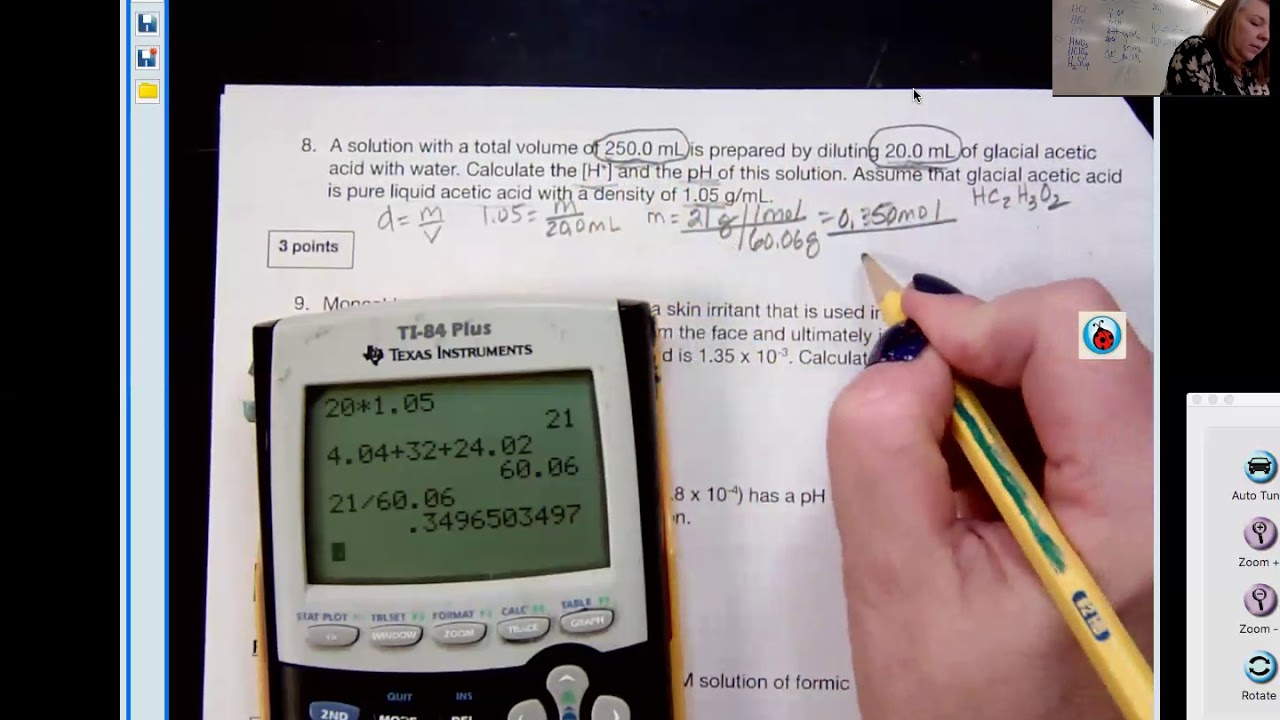 8. A solution with a total volume of 250.0 mL is prepared by diluting 20.0 mL of glacial acetic
acid with water. Calculate the [H⁺] and the pH of this solution. Assume that glacial acetic acid
is pure liquid acetic acid with a density of 1.05 g/mL.
HC₂H₃O₂
d = m/V 1.05 = m/20.0mL m = 21g | 1mol / 60.06g = 0.350mol
3 points
9. Mono
a skin irritant that is used in
m the face and ultimately
d is 1.35 x 10⁻³. Calculat
.8 x 10⁻⁴) has a pH
n.
M solution of formic
TI-84 Plus
TEXAS INSTRUMENTS
20*1.05
21
4.04+32+24.02
60.06
21/60.06
.3496503497
STAT PLOT TBLSET FORMAT CALC TABLE
WINDOW ZOOM TRACE GRAPH
QUIT INS
2ND MODE DEL
Auto Tun
Zoom +
Zoom -
Rotate